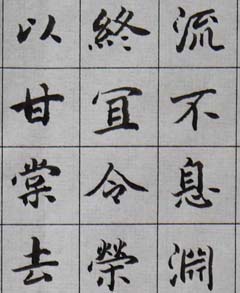 流不息淵
終宜令榮
以甘棠去